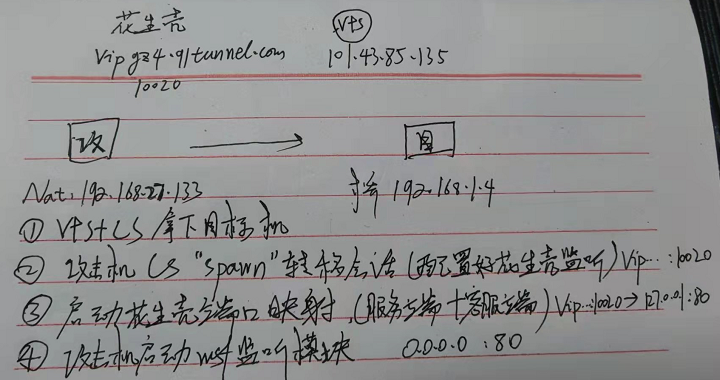 花生壳 VPS
Vip gz4.91tunnel.com 101.43.85.135
10020
攻 → 目
Nat: 192.168.27.133 桥 192.168.1.4
① VPS+CS 拿下目标机
② 攻击机 CS "spawn" 转移会话 (配置好花生壳监听) Vip…:10020
③ 启动花生壳端口映射 (服务端+客服端) Vip…:10020→127.0.0.1:80
④ 攻击机启动 msf 监听模块 0.0.0.0 :80